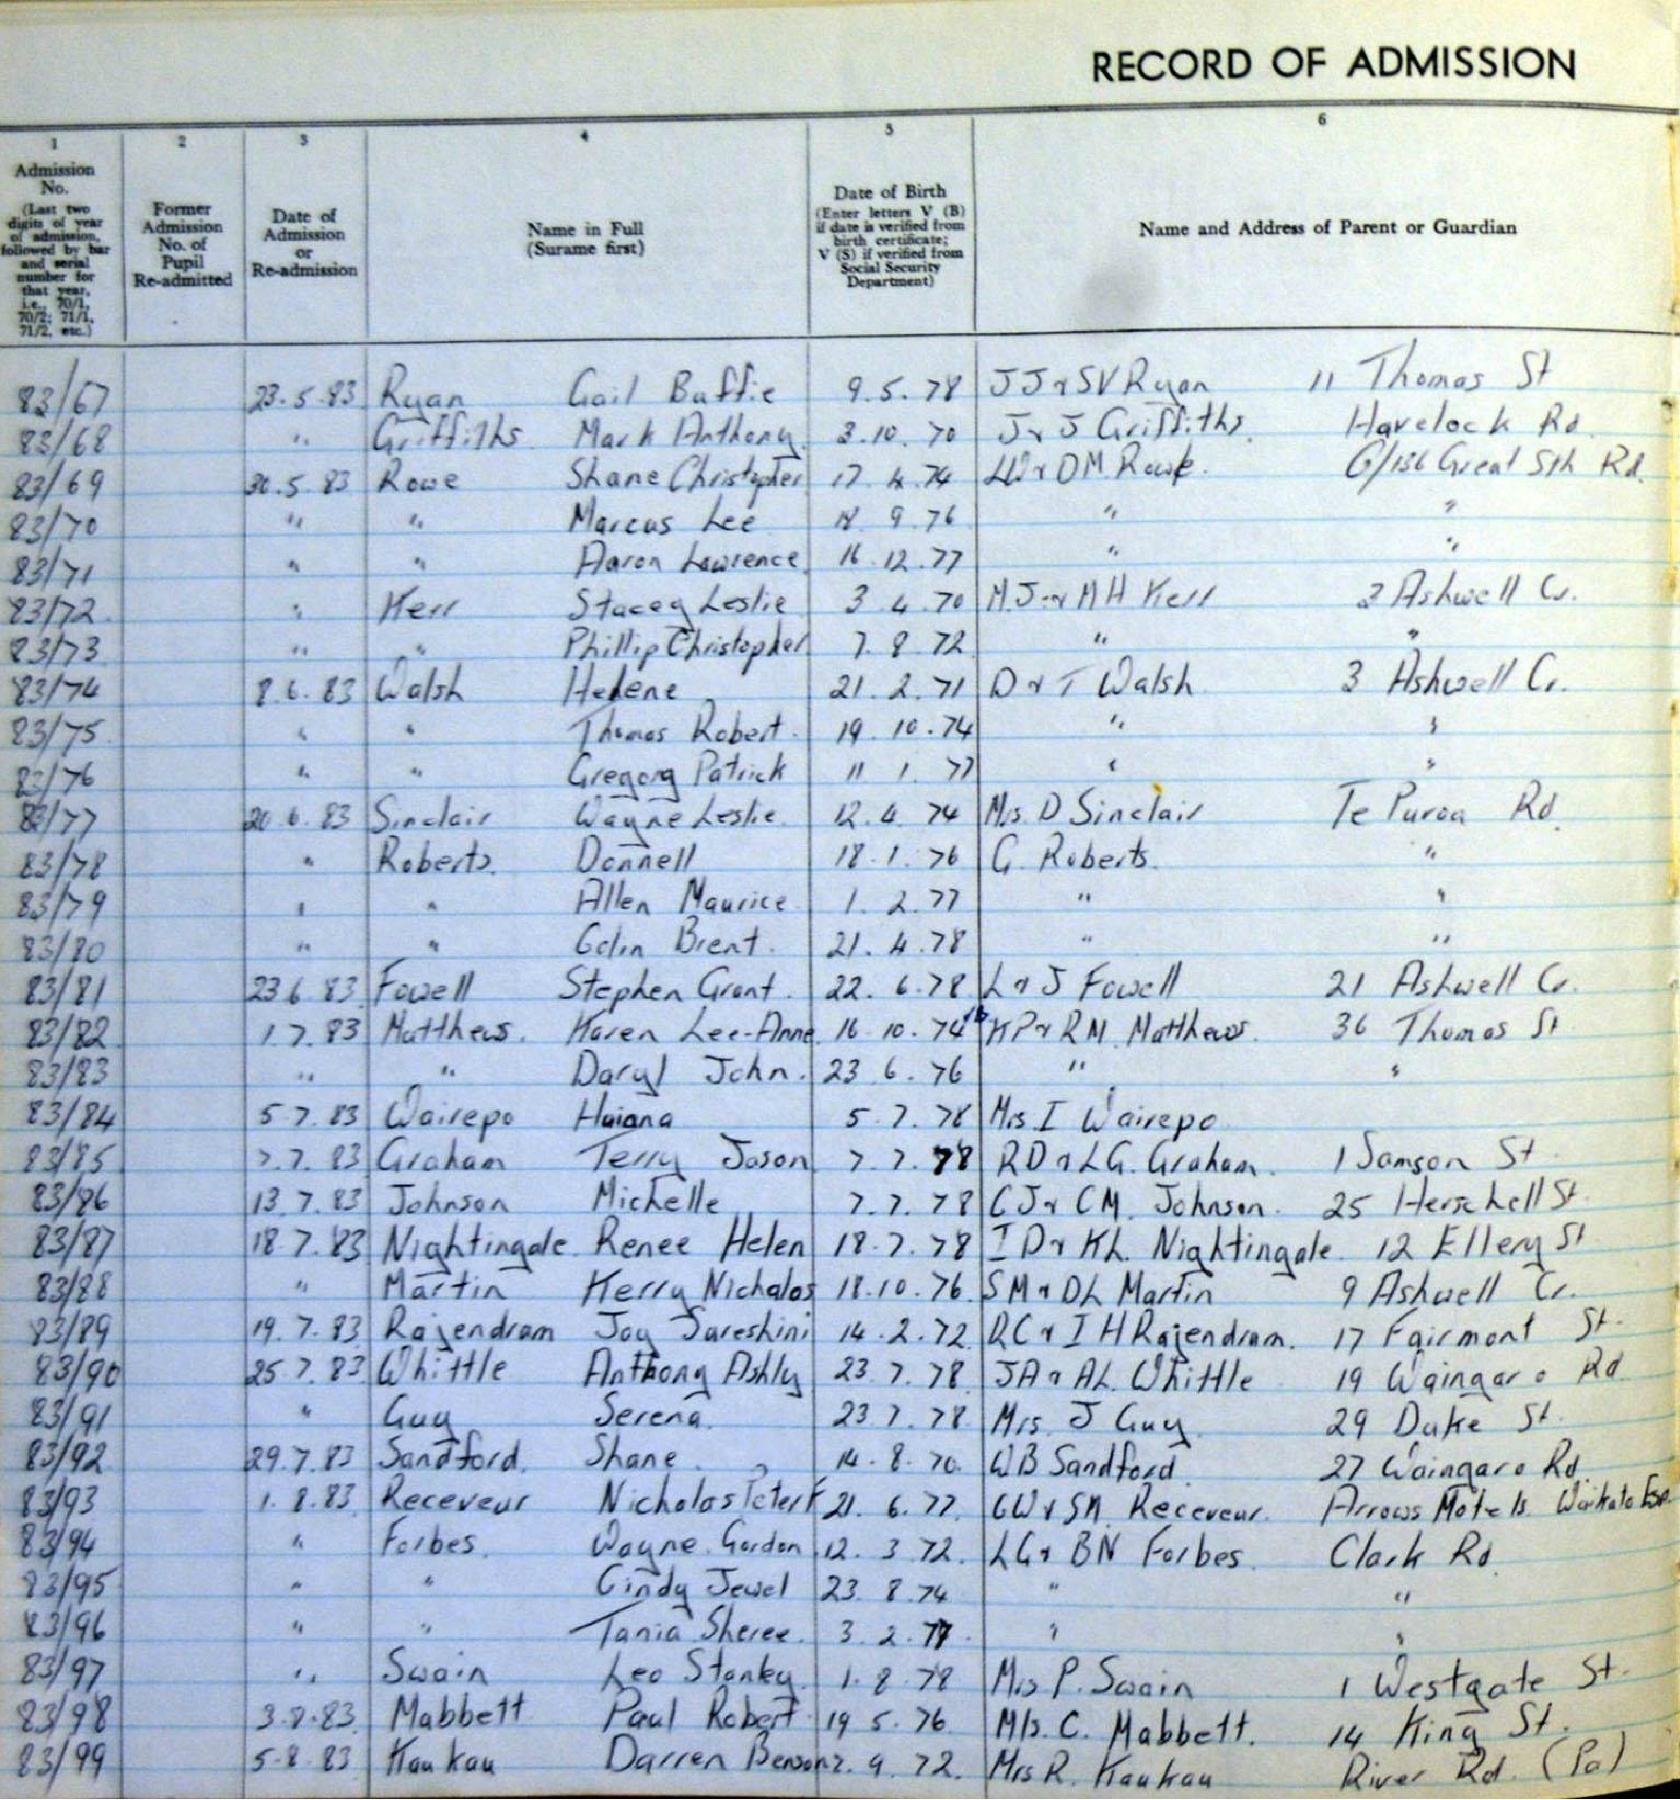 RECORD OF ADMISSION
1 2 3 4 5 6
Admission No. (Last two digits of year of admission, followed by bar and serial number for that year, i.e., 70/1, 70/2; 71/1, 71/2, etc.)
Former Admission No. of Pupil Re-admitted
Date of Admission or Re-admission
Name in Full (Surame first)
Date of Birth (Enter letters V (B) if date is verified from birth certificate; V (S) if verified from Social Security Department)
Name and Address of Parent or Guardian
83/67 23.5.83 Ryan Gail Buffie 9.5.78 J J & S V Ryan 11 Thomas St
83/68 " Griffiths Mark Anthony 3.10.70 J & J Griffiths Havelock Rd
83/69 30.5.83 Rowe Shane Christopher 17.4.74 & D M Rowe. 6/136 Great Sth Rd.
83/70 " " Marcus Lee 18 9.76 " "
83/71 " " Aaron Lawrence 16.12.77 " "
83/72 " Kerr Stacey Leslie 3 4.70 M.J & M H Kerr 2 Ashwell Cr.
83/73 " " Phillip Christopher 7.8.72 " "
83/74 8.6.83 Walsh Helene 21.2.71 D & T Walsh 3 Ashwell Cr.
83/75 " " Thomas Robert 19.10.74 " "
83/76 " " Gregory Patrick 11 1.77 " "
83/77 20.6.83 Sinclair Wayne Leslie 12.4.74 Mrs. D Sinclair Te Puroa Rd.
83/78 " Roberts Donnell 18.1.76 G. Roberts. "
83/79 " " Allen Maurice 1.2.77 " "
83/80 " " Colin Brent. 21.4.78 " "
83/81 23.6.83 Fowell Stephen Grant. 22.6.78 L & J Fowell 21 Ashwell Cr.
83/82 1.7.83 Matthews. Karen Lee-Anne 16.10.74 K P & R M. Matthews. 36 Thomas St
83/83 " " Daryl John. 23.6.76 " "
83/84 5.7.83 Wairepo Huiana 5.7.78 Mrs I Wairepo
83/85 7.7.83 Graham Terry Jason 7.7.78 R D & L G. Graham. 1 Samson St
83/86 13.7.83 Johnson Michelle 7.7.78 C J & C M. Johnson. 25 Herschell St.
83/87 18.7.83 Nightingale Renee Helen 18.7.78 I D & K L. Nightingale. 12 Ellery St
83/88 " Martin Kerry Nicholas 18.10.76 S M & D L Martin 9 Ashwell Cr.
83/89 19.7.83 Rajendram Joy Sareshini 14.2.72 R C & I H Rajendram. 17 Fairmont St.
83/90 25.7.83 Whittle Anthony Ashly 23.7.78 J A & A L. Whittle 19 Waingaro Rd
83/91 " Guy Serena. 23.7.78 Mrs. J Guy 29 Duke St.
83/92 29.7.83 Sandford Shane 14.8.70. W B Sandford. 27 Waingaro Rd.
83/93 1.8.83 Receveur Nicholas Peter K 21.6.77. G W & S M. Receveur. Arrows Motels. Waikato Esp.
83/94 " Forbes Wayne Gordon 12.3 72. L G & B N Forbes. Clark Rd
83/95 " " Cindy Jewel 23.8.74 " "
83/96 " " Tania Sheree 3.2.77 " "
83/97 " Swain Leo Stanley 1.8.78 Mrs P. Swain 1 Westgate St.
83/98 3.8.83 Mabbett Paul Robert 19 5.76 Mrs. C. Mabbett. 14 King St.
83/99 5.8.83 Kaukau Darren Benson 2.9.72. Mrs R. Kaukau River Rd. (Pa)